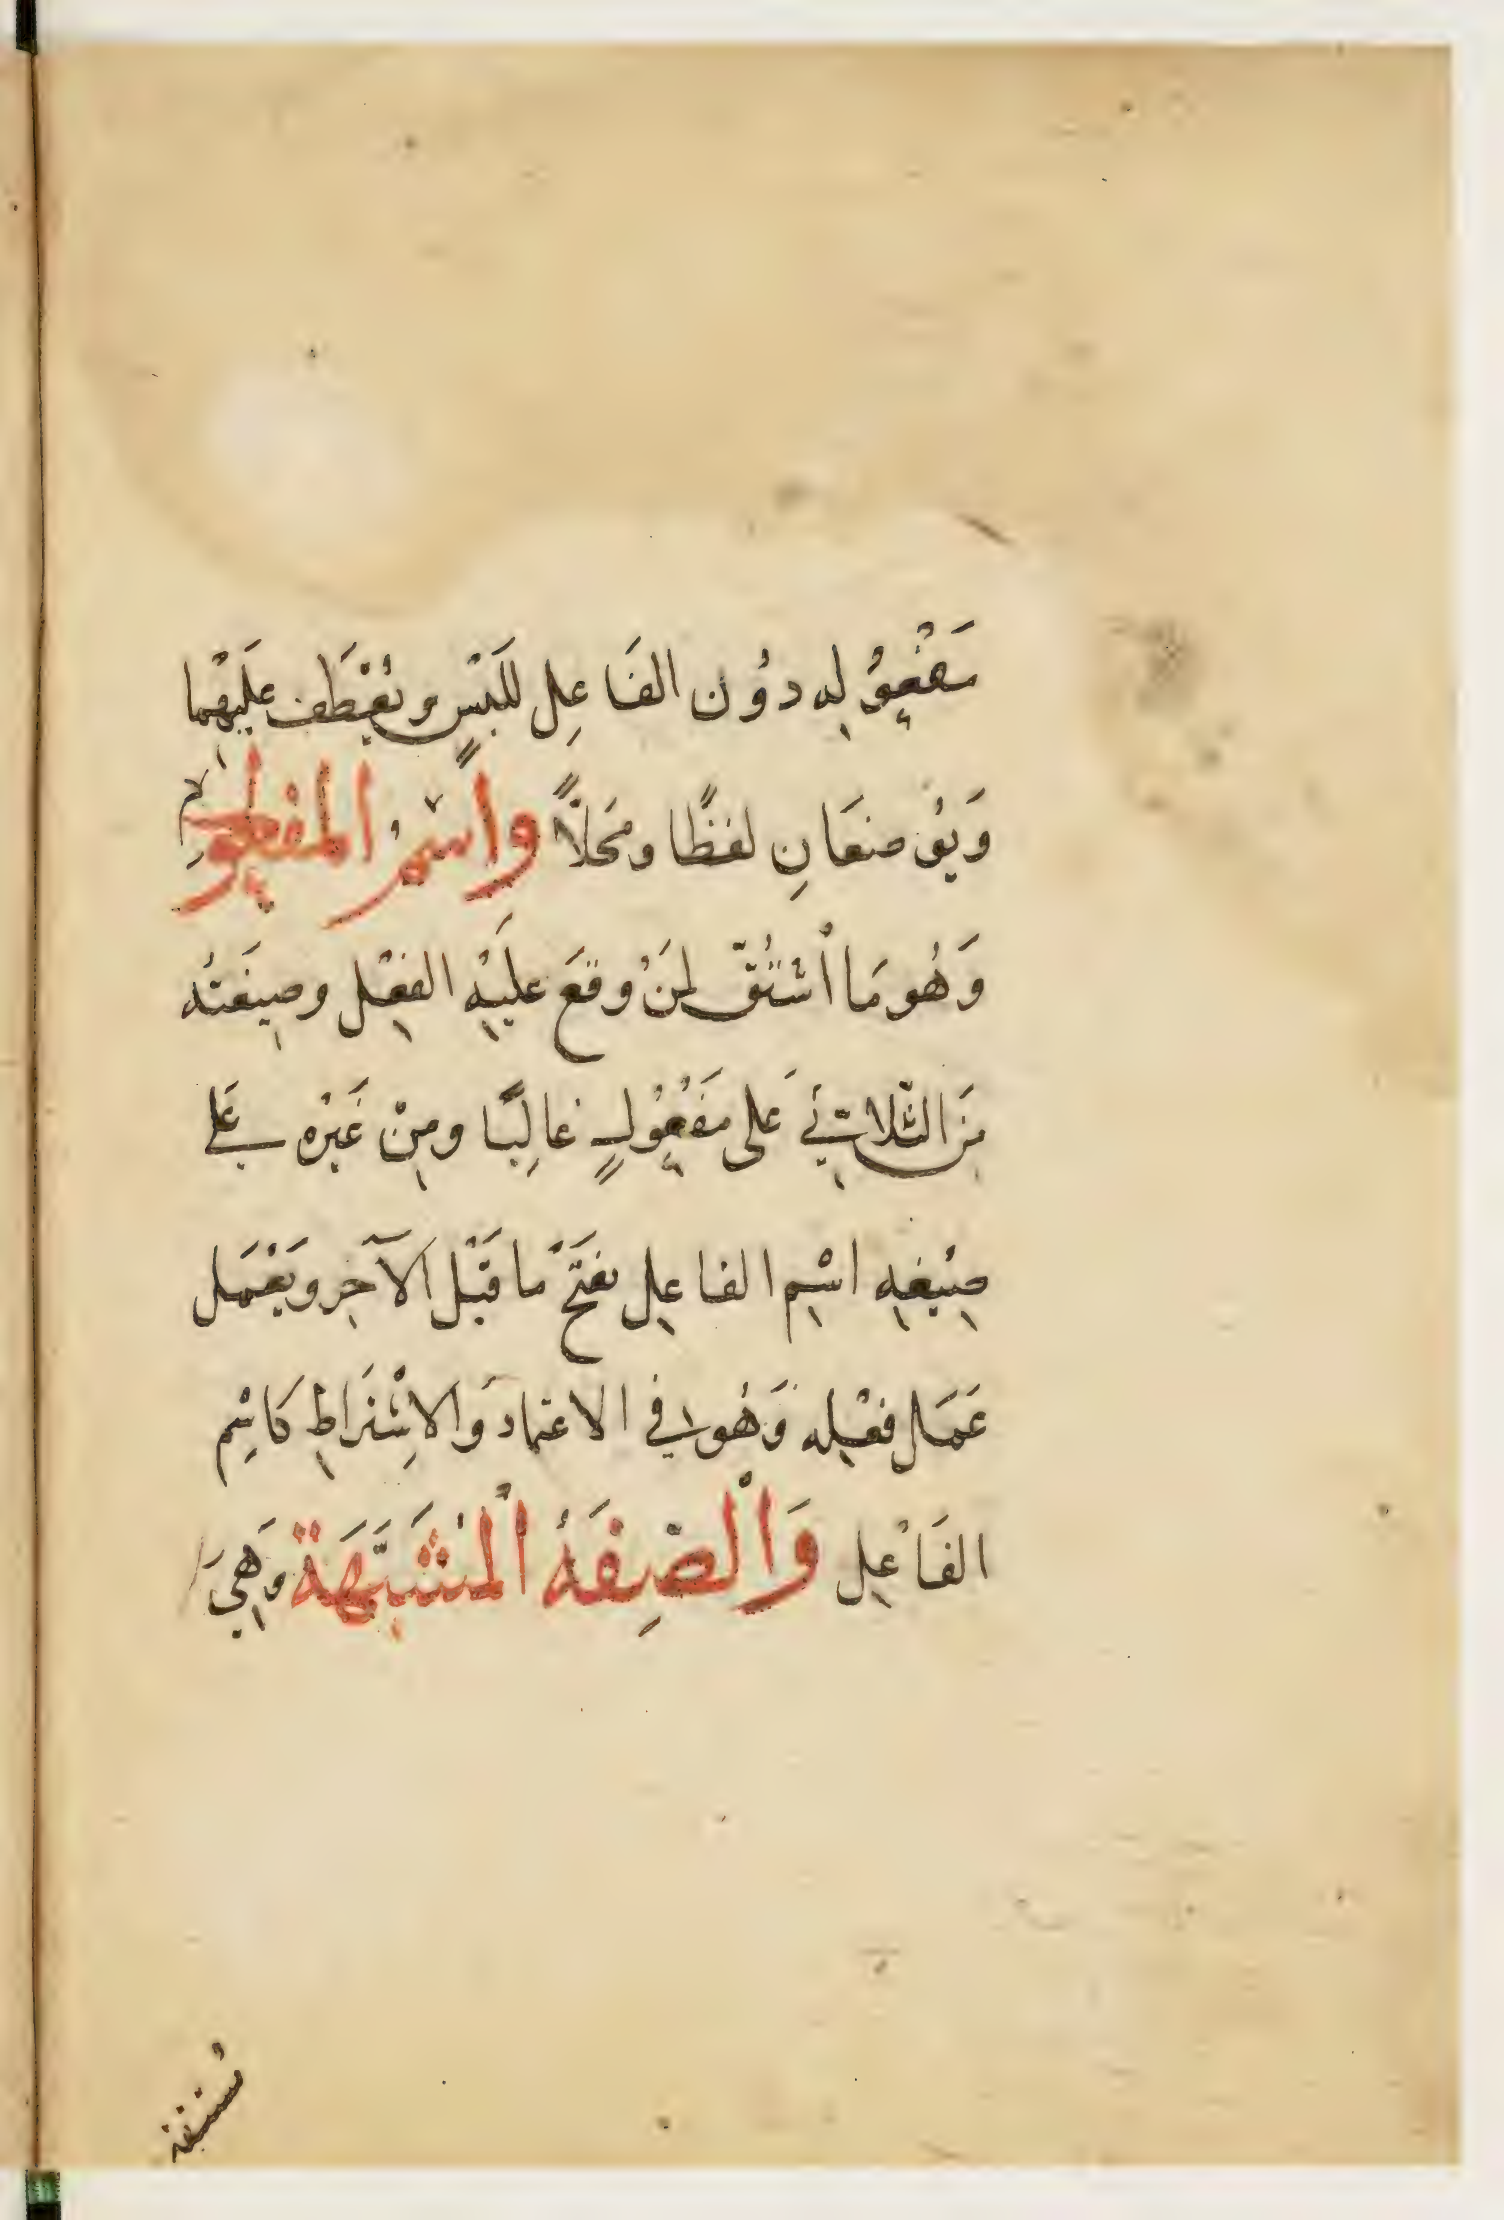 مَفْعُوْلِهِ دُوْن الفَاعِلِ لِلَبَسٍ ويُعْطَف عَلَيْهِمَا
وَيُوْصفَانِ لفظًا ومَحَلّاً واسْمُ المفعُوْلِ
وَهُو مَا اْشْتُقّ لِمَنْ وقَعَ عليْهِ الفِعْل وصِيغَتُه
مِنَ الثّلاثِيْ عَلى مَفْعُوْلٍ غالِبًا ومِنْ غَيْرهِ عَلى
صِيْغهِ اسْمِ الفاعِلِ بفَتْحِ ما قَبْل الآخِر ويَعْمَل
عَمَل فعْلِه وَهُو في الاعتماد وَالاِشْتَراطِ كَاسْمِ
الفَاعِلِ وَالْصِفَهُ الْمُشَبَّهَة وَهِيَ
مُشتقة